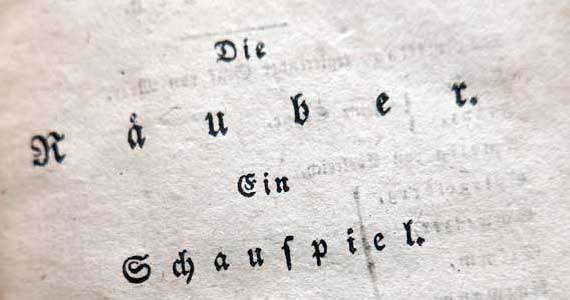 Die
Räuber.
Ein
Schauſpiel.